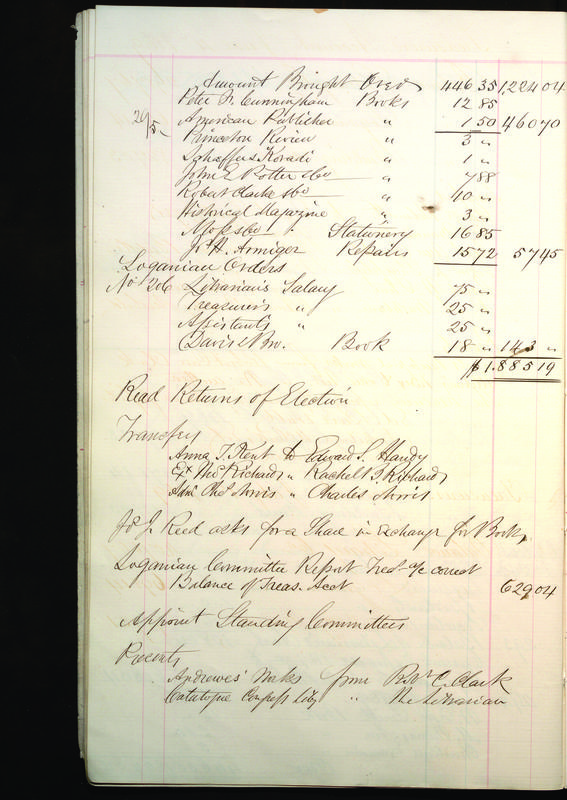 Amount Brought Over 446 35 1,224 04
Peter F. Cunningham Books 12 85
29/5 American Publisher " 1 50 460 70
Princeton Review " 3 "
Schaffer & Koradi " 1 "
John E Potter &Co " 7 88
Robert Clarke &Co " 10 "
Historical Magazine " 3 "
Moss &Co Stationery 16 85
Jos H. Armiger Repairs 15 72 57 45
Loganian Orders
No 206 Librarian's Salary 75 "
Treasurer's " 25 "
Assistant's " 25 "
Davis & Bro. Book 18 " 143 "
$1.885 19
Read Returns of Election
Transfers
Anna T. Kent to Edward S. Handy
Ex Richards " Rachel Richards
Morris " Charles Morris
J. Reed asks for a Share in Exchange for Books
Loganian Committee Report Treas. a/c correct
Balance of Treas. Acct 629 04
Appoint Standing Committees
Presents
Andrewes' Works from C. Clark
Catalogue Congress Liby " The Librarian